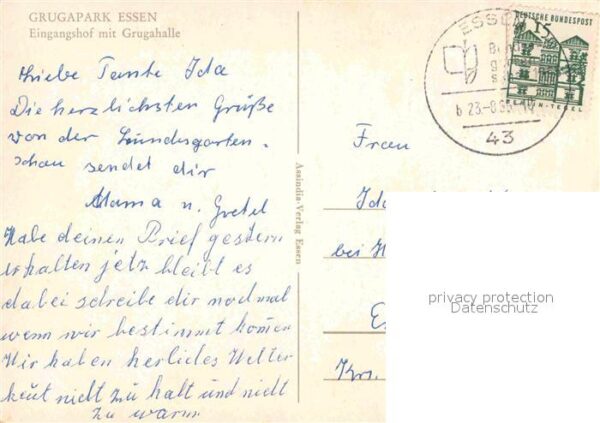 GRUGAPARK ESSEN
Eingangshof mit Grugahalle
Liebe Tante Ida
Die herzlichsten Grüße
von der Bundesgarten-
schau sendet dir
Mama u. Gretel
Habe deinen Brief gestern
erhalten jetz bleibt es
dabei schreibe dir nochmal
wenn wir bestimmt komen
Wir haben herliches Wetter
heut nicht zu kalt und nicht
zu warm
Assindia-Verlag Essen
ESSEN
b 23.-8.65
43
DEUTSCHE BUNDESPOST
15
BERLIN-TEGEL
Frau
Ida
bei H
E
Krs.
privacy protection
Datenschutz